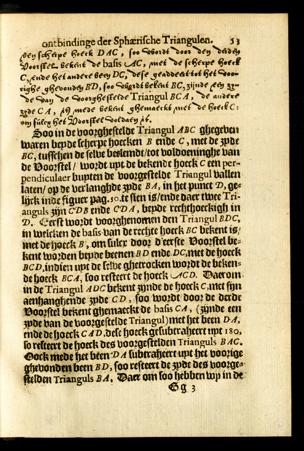 ontbindinge der Sphærische Triangulen. 53
een scherpe hoeck DAC, soo wordt door den derden
Voorstel bekent de basis AC, met de scherpe hoeck
C, ende het andere been DC, dese geaddeert tot het voor-
righe ghevonden BD, soo wordt bekent BC, zijnde een zy-
de van de voorghestelde Triangul BCA, de andere
zyde CA, is mede bekent ghemaeckt met de hoeck C:
om sulcx het Voorstel voldaen is.
Soo in de voorghestelde Triangul ABC ghegeven
waren beyde scherpe hoecken B ende C, met de zyde
BC, tusschen de selve beslendt/ tot voldoeninghe van
de Voorstel/ wordt upt de bekende hoeck C een per-
pendiculaer bupten de voorgestelde Triangul vallen
laten/ op de verlanghde zyde BA, in het punct D, ge-
lijck inde figuer pag. 50. te sien is/ ende daer twee Tri-
anguls zijn CDB ende CDA, beyde rechthoeckigh in
D. Eerst wordt voorghenomen den Triangul BDC,
in welcken de basis van de rechte hoeck BC bekent is/
met de hoeck B, om sulcx door d'eerste Voorstel be-
kent worden beyde beenen BD ende DC, met de hoeck
BCD, indien upt de selve ghetrocken wordt de beken-
de hoeck BCA, soo resteert de hoeck ACD. Daerom
in de Triangul ADC bekent zijnde de hoeck C, met sijn
aenhanghende zyde CD, soo wordt door de derde
Voorstel bekent ghemaeckt de basis CA, (zijnde een
zyde van de voorgestelde Triangul) met het been DA,
ende de hoeck CAD, dese hoeck gesubtraheert upt 180,
so resteert de hoeck des voorgestelden Trianguls BAC.
Oock mede het been DA subtraheert upt het voorige
ghevonden been BD, soo resteert de zyde des voorge-
stelden Trianguls BA. Daer om soo hebben wy in de
Gg 3